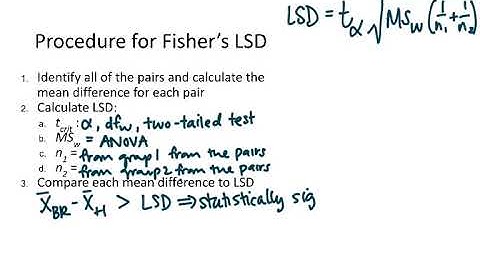 LSD = tα √MSw (1/n1 + 1/n2)
Procedure for Fisher's LSD
1. Identify all of the pairs and calculate the
mean difference for each pair
2. Calculate LSD:
a. tcrit : α, dfw, two-tailed test
b. MSw = ANOVA
c. n1 = from group 1 from the pairs
d. n2 = from group 2 from the pairs
3. Compare each mean difference to LSD
X̄BR - X̄H > LSD ⇒ statistically sig